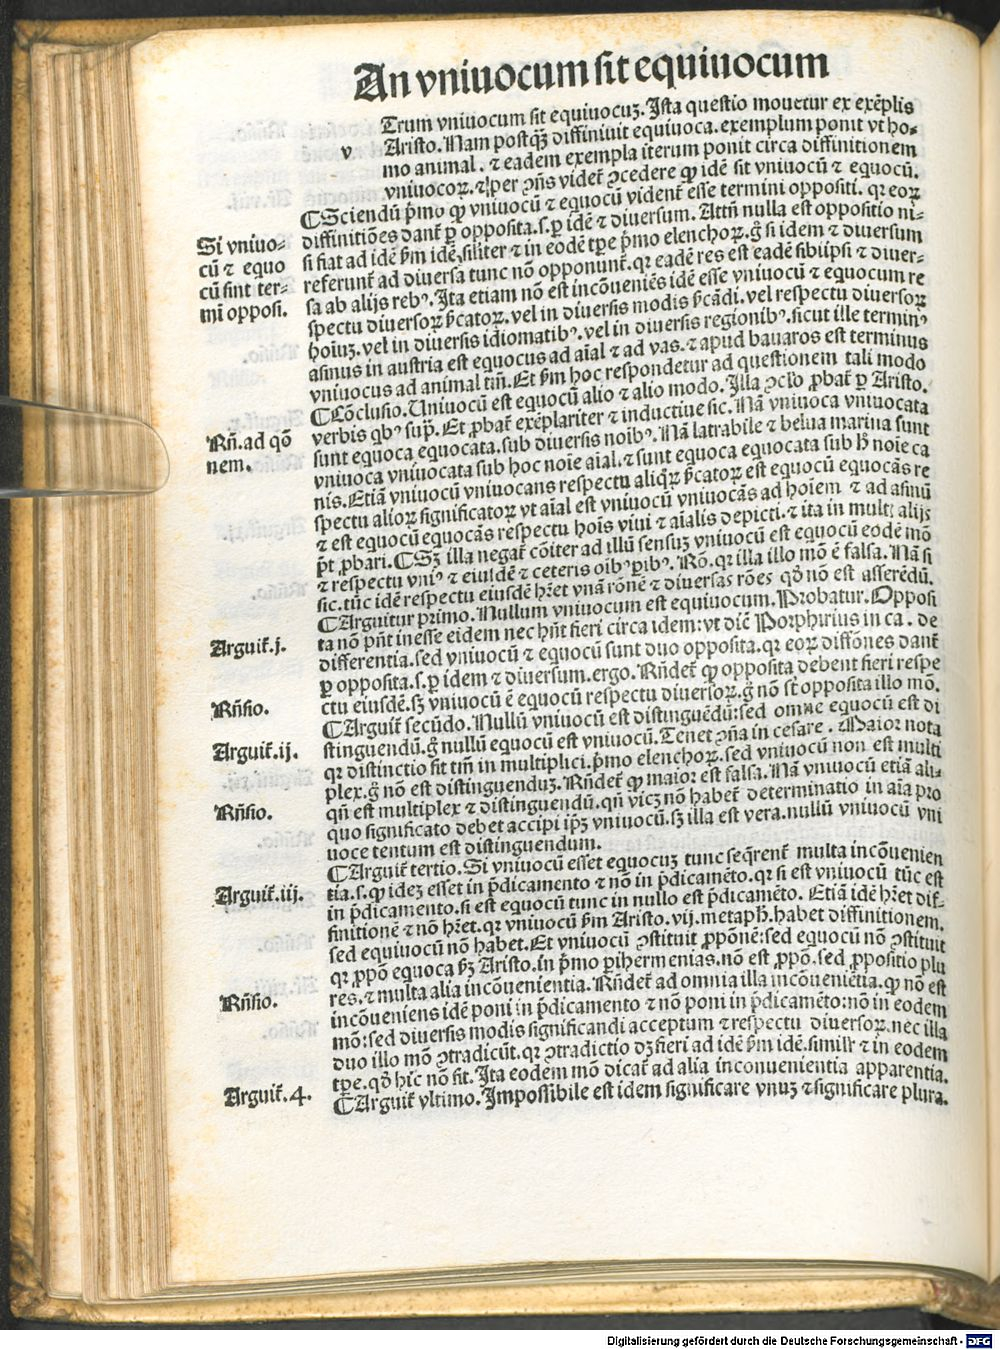 An vniuocum sit equiuocum
Trum vniuocum sit equiuocuꝫ. Ista questio mouetur ex exēplis
v Aristo. Nam postqꝫ diffiniuit equiuoca. exemplum ponit vt ho-
mo animal. ⁊ eadem exempla iterum ponit circa diffinitionem
vniuocoꝝ. ⁊ ꝑ ꝯñs videt̄ ꝓcedere ꝙ idē sit vniuocū ⁊ equocū.
¶ Sciendū p̄mo ꝙ vniuocū ⁊ equocū vident̄ esse termini oppositi. qꝛ eoꝝ
Si vniuo-
cū ⁊ equo
cū sint ter-
mi opposi.
diffinitiōes dant̄ ꝑ opposita. s. ꝑ idē ⁊ diuersum. Attñ nulla est oppositio ni-
si fiat ad idē p̄m idē, siliter ⁊ in eodē tꝑe p̄mo elenchoꝝ. g̊ si idem ⁊ diuersum
referunt̄ ad diuersa tunc nō opponunt̄. qꝛ eadē res est eadē sibiipsi ⁊ diuer-
sa ab alijs rebꝰ. Ita etiam nō est incōueniēs idē esse vniuocū ⁊ equocum re
spectu diuersoꝝ p̄catoꝝ. vel in diuersis modis p̄cādi. vel respectu diuersoꝝ
hoīuꝫ. vel in diuersis idiomatibꝰ. vel in diuersis regionibꝰ. sicut ille terminꝰ
asinus in austria est equocus ad aīal ⁊ ad vas. ⁊ apud bauaros est terminus
vniuocus ad animal tm̄. Et p̄m hoc respondetur ad questionem tali modo
¶ Cōclusio. Uniuocū est equocū alio ⁊ alio modo. Illa ꝯclo ꝓbat̄ ꝑ Aristo.
Rñ. ad qō
nem.
verbis qbꝰ sup̄. Et ꝓbat̄ exēplariter ⁊ inductiue sic. Nā vniuoca vniuocata
sunt equoca equocata. sub diuersis noībꝰ. Nā latrabile ⁊ belua marina sunt
vniuoca vniuocata sub hoc noīe aīal. ⁊ sunt equoca equocata sub h̄ noīe ca
nis. Etiā vniuocū vniuocans respectu aliqꝝ p̄catoꝝ est equocū equocās re
spectu alioꝝ significatoꝝ vt aīal est vniuocū vniuocās ad hoīem ⁊ ad asinū
⁊ est equocū equocās respectu hoīs viui ⁊ aīalis depicti. ⁊ ita in mult̄ alijs
p̄t ꝓbari. ¶ Sꝫ illa negat̄ cōiter ad illū sensuꝫ vniuocū est equocū eodē mō
⁊ respectu vniꝰ ⁊ eiusdē ⁊ ceteris oībꝰ ꝑibꝰ. Rō. qꝛ illa illo mō ē falsa. Nā si
sic. tūc idē respectu eiusdē hr̄et vnā rōnē ⁊ diuersas rōes qō nō est asserēdū.
¶ Arguitur primo. Nullum vniuocum est equiuocum. Probatur. Opposi
Arguit̄. j.
ta nō pn̄t inesse eidem nec hn̄t fieri circa idem: vt dic̄ Porphirius in ca. de
differentia. sed vniuocū ⁊ equocū sunt duo opposita. qꝛ eoꝝ diffōnes dant̄
ꝑ opposita. s. ꝑ idem ⁊ diuersum. ergo. Rñdet̄ ꝙ opposita debent fieri respe
Rñsio.
ctu eiusdē. sꝫ vniuocū ē equocū respectu diuersoꝝ. g̊ nō st̄ opposita illo mō.
¶ Arguit̄ secūdo. Nullū vniuocū est distinguēdū: sed omne equocū est di
Arguit̄. ij.
stinguendū. g̊ nullū equocū est vniuocū. Tenet ꝯña in cesare. Maior nota
qꝛ distinctio fit tm̄ in multiplici. p̄mo elenchoꝝ. sed vniuocū non est multi
plex. g̊ nō est distinguenduꝫ. Rñdet̄ ꝙ maior est falsa. Nā vniuocū etiā ali-
Rñsio.
qn̄ est multiplex ⁊ distinguendū. qn̄ vicꝫ nō habet̄ determinatio in aīa pro
quo significato debet accipi ip̄ꝫ vniuocū. sꝫ illa est vera. nullū vniuocū vni
uoce tentum est distinguendum.
¶ Arguit̄ tertio. Si vniuocū esset equocuꝫ tunc seq̄rent̄ multa incōuenien
Arguit̄. iij.
tia. s. ꝙ ideꝫ esset in p̄dicamento ⁊ nō in p̄dicamēto. qꝛ si est vniuocū tūc est
in p̄dicamento. si est equocū tunc in nullo est p̄dicamēto. Etiā idē hr̄et dif-
finitionē ⁊ nō hr̄et. qꝛ vniuocū p̄m Aristo. vij. metaph̄. habet diffinitionem.
sed equiuocū nō habet. Et vniuocū ꝯstituit ꝓpōnē: sed equocū nō ꝯstituit
qꝛ ꝓpō equoca p̄ꝫ Aristo. in p̄mo perihermenias. nō est ꝓpō. sed ꝓpositio plu
res. ⁊ multa alia incōuenientia. Rñdet̄ ad omnia illa incōueniētia. ꝙ nō est
Rñsio.
incōueniens idē poni in p̄dicamento ⁊ nō poni in p̄dicamēto: nō in eodem
mō: sed diuersis modis significandi acceptum ⁊ respectu diuersoꝝ. nec illa
duo illo mō ꝯtradicūt. qꝛ ꝯtradictio dꝫ fieri ad idē p̄m idē. similr̄ ⁊ in eodem
tꝑe. qō hic nō fit. Ita eodem mō dicat̄ ad alia inconuenientia apparentia.
Arguit̄. 4.
¶ Arguit̄ vltimo. Impossibile est idem significare vnuꝫ ⁊ significare plura.
Digitalisierung gefördert durch die Deutsche Forschungsgemeinschaft - DFG